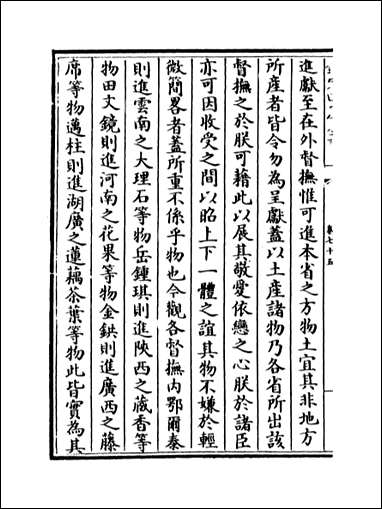 進獻至在外督撫惟可進本省之方物土宜其非地方
所產者皆令勿為呈獻蓋以土產諸物乃各省所出該
督撫之於朕可藉此以展其敬愛依戀之心朕於諸臣
亦可因收受之間以昭上下一體之誼其物不嫌於輕
微簡畧者蓋所重不係乎物也今觀各督撫内鄂爾泰
則進雲南之大理石等物岳鍾琪則進陝西之藏香等
物田文鏡則進河南之花果等物金鉷則進廣西之藤
席等物邁柱則進湖廣之蓮藕茶葉等物此皆實為其
卷七十五